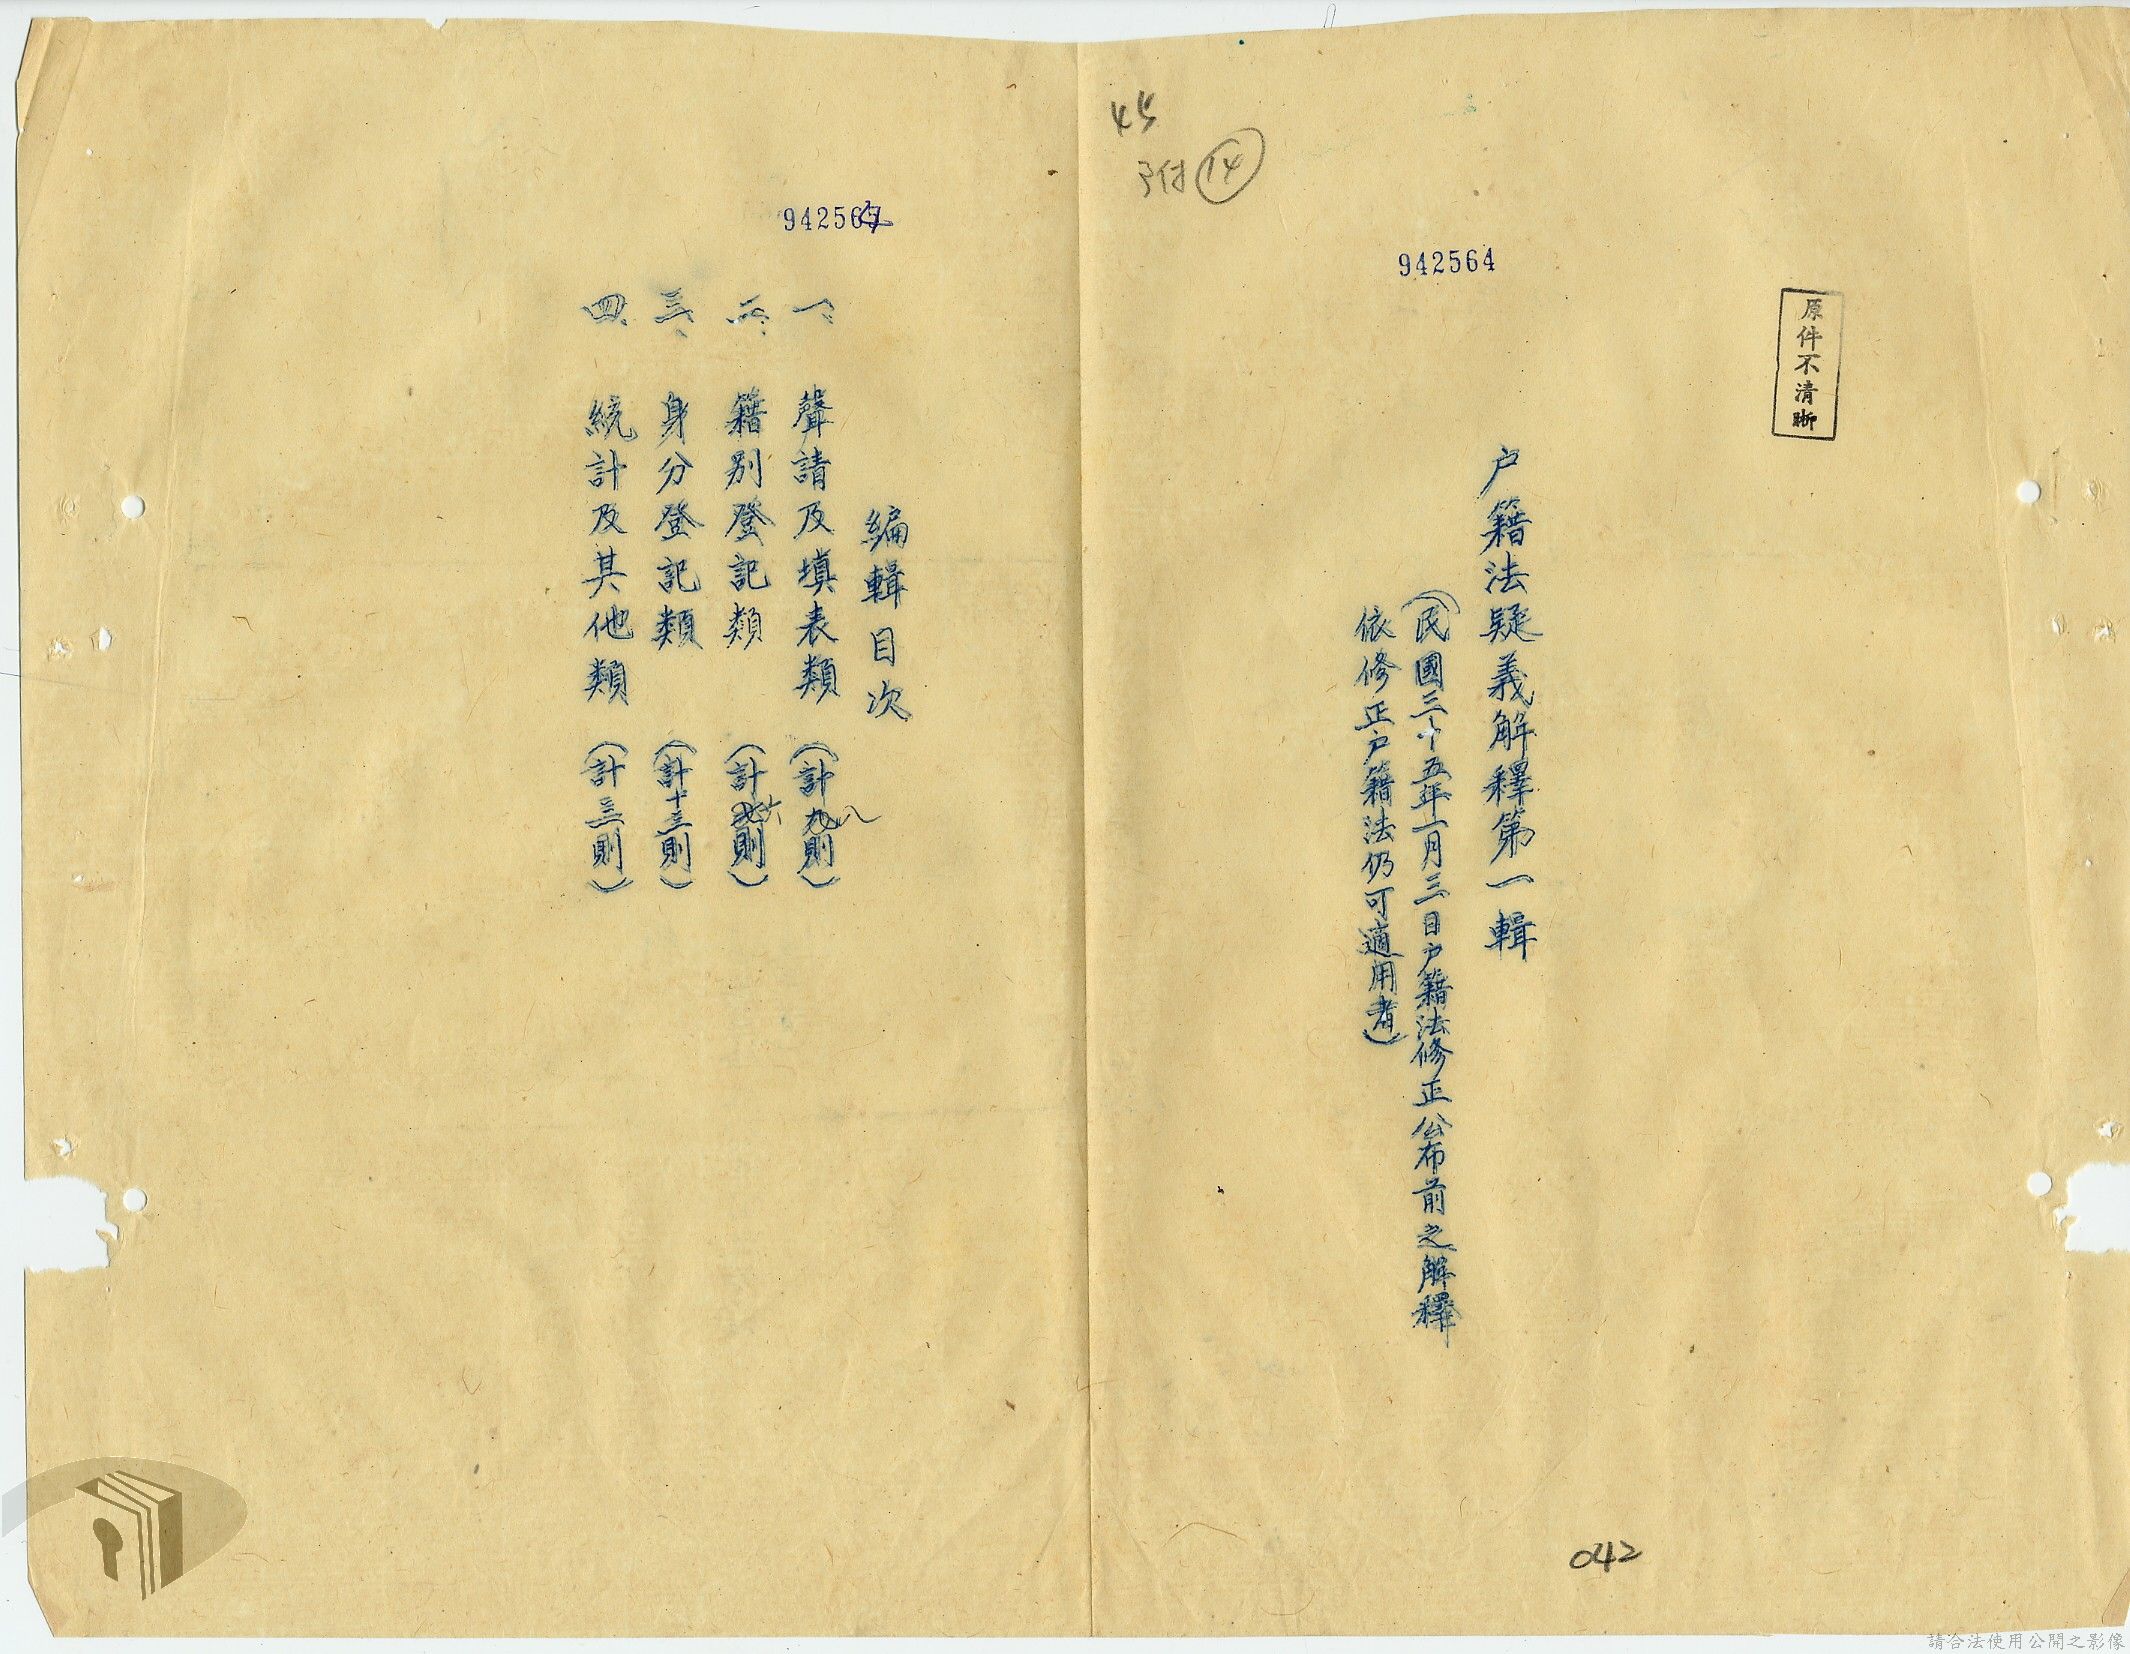 原件不清晰
942564
戶籍法疑義解釋第一輯
(民國三十五年一月三日戶籍法修正公布前之解釋
依修正戶籍法仍可適用者)
45
14
042
編輯目次
一、聲請及填表類(計八則)
二、籍別登記類(計六則)
三、身分登記類(計十三則)
四、統計及其他類(計三則)
請合法使用公開之影像